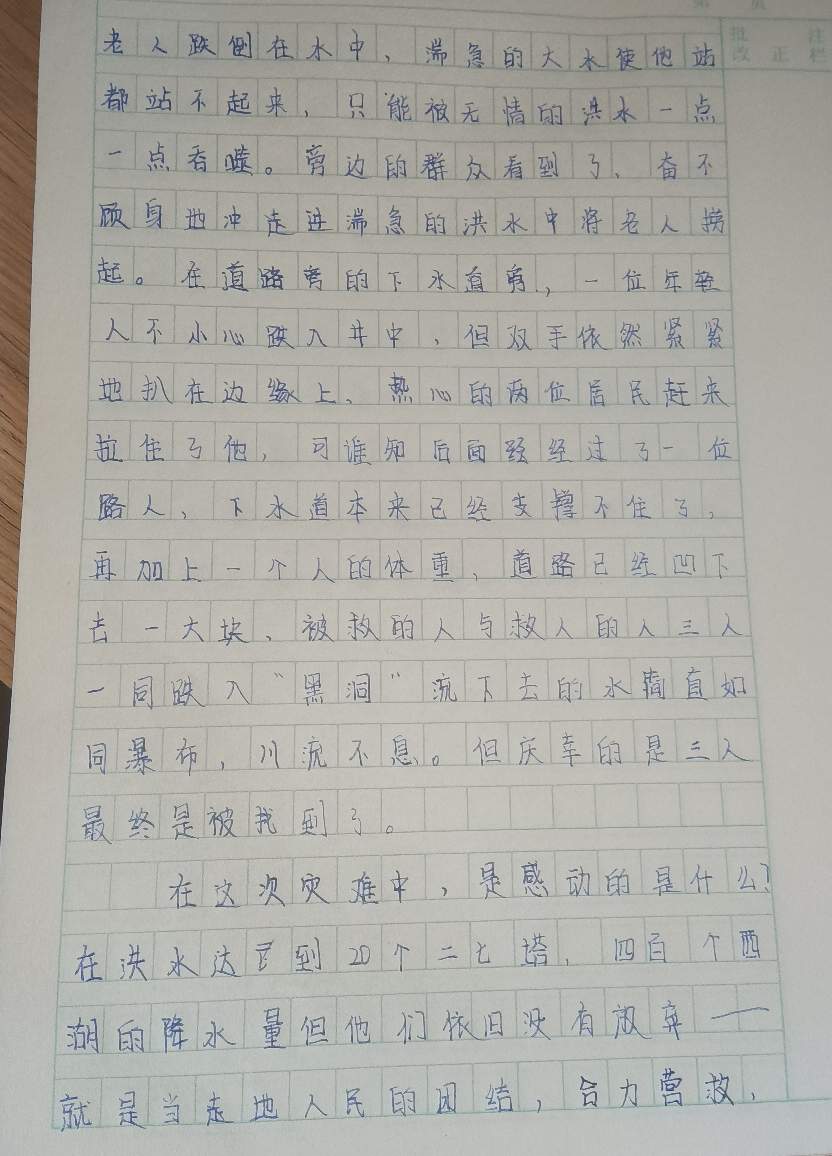 批 注
改 正 栏
老人跌倒在水中，湍急的大水使他站
都站不起来，只能被无情的洪水一点
一点吞噬。旁边的群众看到了，奋不
顾身地冲走进湍急的洪水中将老人捞
起。在道路旁的下水道旁，一位年轻
人不小心跌入井中，但双手依然紧紧
地扒在边缘上、热心的两位居民赶来
拉住了他，可谁知后面经过了一位
路人，下水道本来已经支撑不住了，
再加上一个人的体重，道路已经凹下
去一大块、被救的人与救人的人三人
一同跌入“黑洞”流下去的水简直如
同瀑布，川流不息。但庆幸的是三人
最终是被找到了。
在这次灾难中，是感动的是什么？
在洪水达到20个二七塔，四百个西
湖的降水量但他们依旧没有放弃——
就是当走地人民的团结，合力营救，